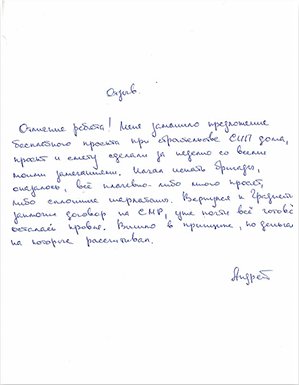 Отзыв.
Отличные ребята! Меня заманило предложение
бесплатного проекта при строительстве СИП дома,
проект и смету сделали за неделю со всеми
моими замечаниями. Начал искать бригады,
оказалось, всё плачевно - либо много просят,
либо сплошные шарлатаны. Вернулся к
заключил договор на СМР, уже почти всё готово
осталась кровля. Вышло в принципе, по деньгам
на которые рассчитывал.
Андрей